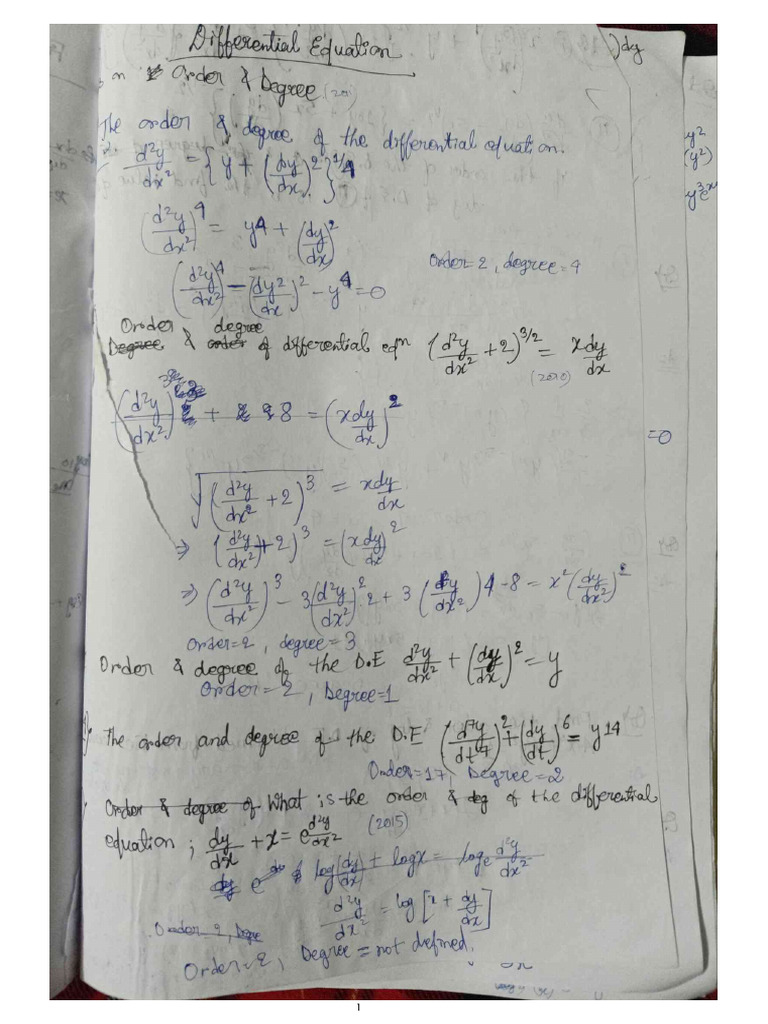 Differential Equation
)dy
n Order & Degree (20
The order & degree of the differential equation.
d²y/dx² = {y + (dy/dx)²}^1/4
(d²y/dx²)⁴ = y4 + (dy/dx)²
Order=2, degree=4
(d²y/dx²)⁴ - (dy2/dx)² - y⁴ = 0
Order degree
Degree & order of differential eqn (d²y/dx² + 2)^3/2 = xdy/dx
(2010)
(d²y/dx²) + 8 = (xdy/dx)²
=0
√(d²y/dx² + 2)³ = xdy/dx
⇒ (d²y/dx² + 2)³ = (xdy/dx)²
⇒ (d²y/dx²)³ - 3(d²y/dx²)².2 + 3(dy/dx²)4 - 8 = x²(dy/dx²)²
Order=2, degree=3
Order & degree of the D.E d²y/dx² + (dy/dx)² = y
Order=2, Degree=1
The order and degree of the D.E (d⁷y/dt⁷)² + (dy/dt)⁶ = y14
Order=17, Degree=2
Order & degree of What is the order & deg of the differential
equation; dy/dx + x = e^d²y/dx² (2015)
log(dy/dx) + logx = loge d²y/dx²
d²y/dx² = log[x + dy/dx]
Order=2, Degree
Order=2, Degree = not defined.
y²
(y²)
y³eˣ
1